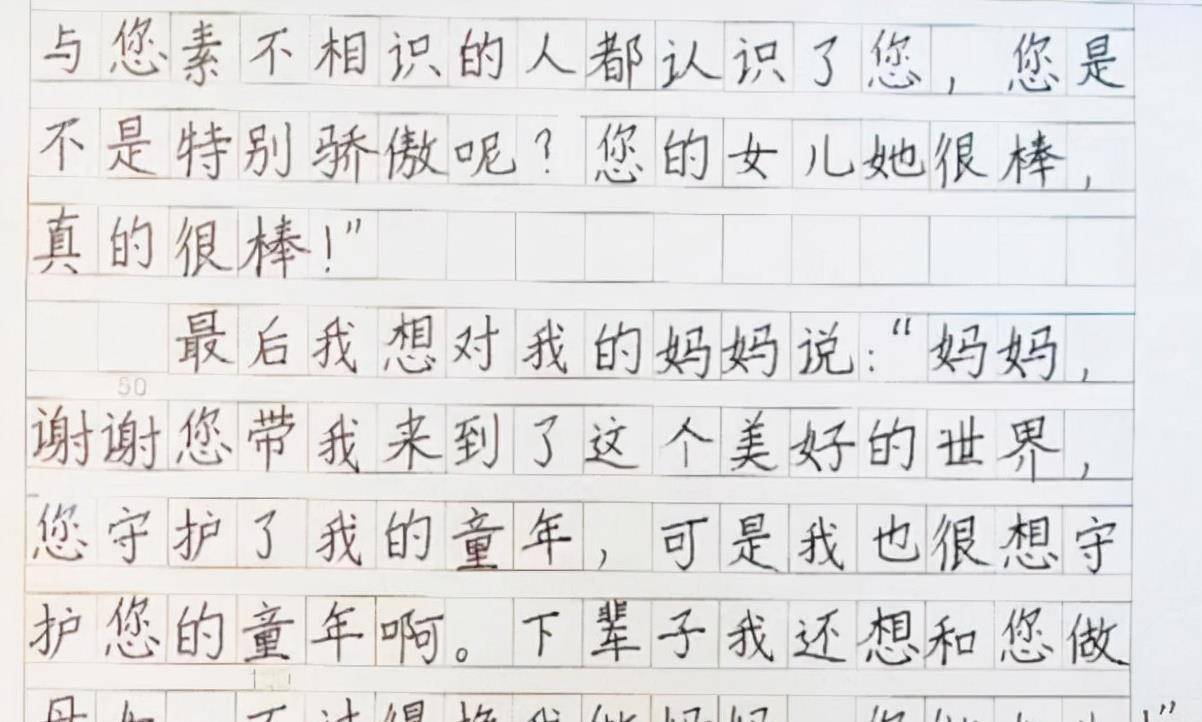 与您素不相识的人都认识了您，您是
不是特别骄傲呢？您的女儿她很棒，
真的很棒！”
最后我想对我的妈妈说：“妈妈，
50
谢谢您带我来到了这个美好的世界，
您守护了我的童年，可是我也很想守
护您的童年啊。下辈子我还想和您做